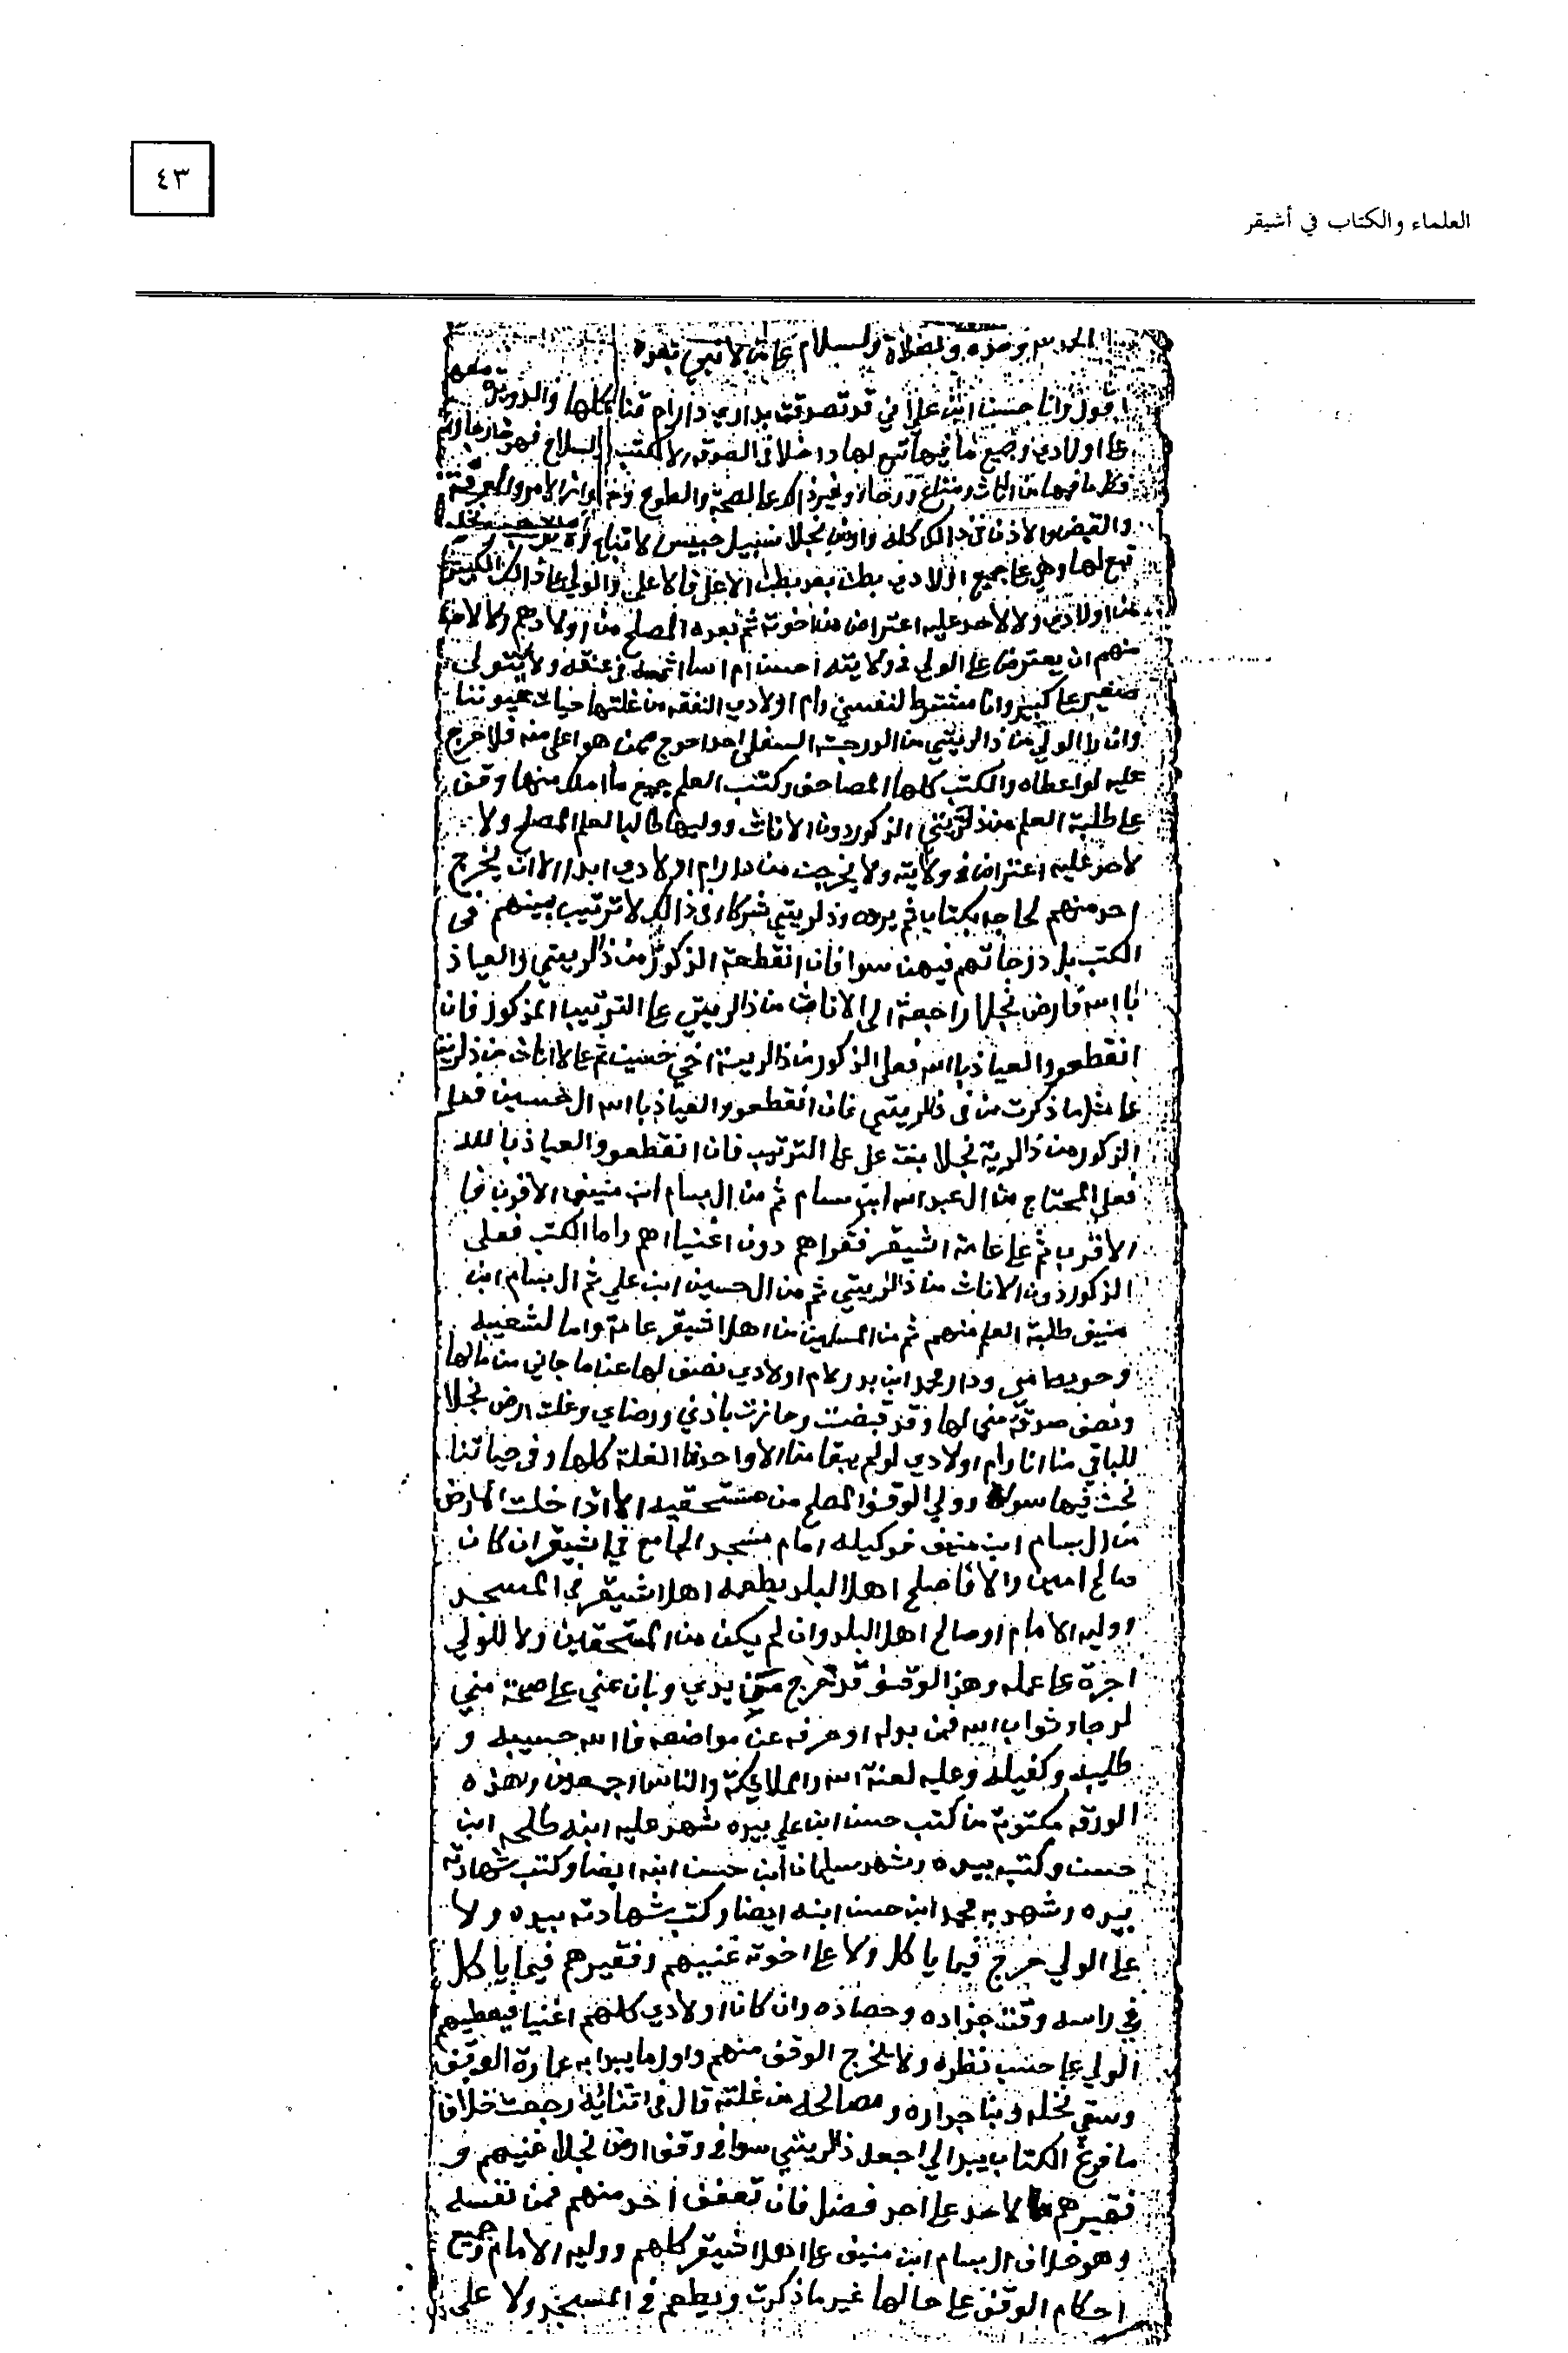 ٤٣
العلماء والكتاب في أشيقر
الحمد لله وحده والصلاة والسلام على من لا نبي بعده
اقول وانا حسن ابن علي اني قد تصدقت بداري دار ام قنا كلها والدويرة معها
على اولادي وجميع ما فيها تبع لها داخلا في الصدقه الا الكتب والسلاح فهو خارج
وكل ما فيها من اثاث ومتاع وغير ذالك على الصحة والطوع
والقبض والاذن في ذالك كله وارض نجلا سبيل حبيس لا تباع
تبع لها وهي على جميع اولادي بطن بعد بطن الاعلى فالاعلى والولي على ذالك الكبير
من اولادي ولا لاحد عليه اعتراض من اخوته ثم بعده المصلح من اولادهم ولا لاحد
منهم ان يعترض على الولي في ولايته احسن ام اسا اثمه في عنقه ولا يتولى
صغير على كبير وانا مشترط لنفسي وام اولادي النفقه من غلتها حيات عيوننا
وان را الولي من ذالريتي من الدرجة السفلى احدا احوج ممن هو اعلى منه فلا حرج
عليه لو اعطاه والكتب كلها المصاحف وكتب العلم جميع ما املك منها وقف
على طلبة العلم من ذالريتي الذكور دون الاناث ووليها طالب العلم المصلح ولا
لاحد عليه اعتراض في ولايته ولا يخرجن من دار ام اولادي ابدا الا ان يخرج
احد منهم لحاجه بكتاب ثم يرده وذالريتي شركا في ذالك لا ترتيب بينهم في
الكتب بل درجاتهم فيهن سوا فان انقطعة الذكور من ذالريتي والعياذ
باالله فارض نجلا راجعة الى الاناث من ذالريتي على الترتيب المذكور فان
انقطعو والعياذ باالله فعلى الذكور من ذالرية اخي حسين ثم على الاناث من ذالريته
على مثل ما ذكرت من في ذالريتي فان انقطعو والعياذ باالله ال حسين فعلى
الذكور من ذالرية نجلا بنت علي على الترتيب فان انقطعو والعياذ بالله
فعلى المحتاج من ال عبدالله ابن بسام ثم من ال بسام ابن منيف الاقرب فا
الاقرب ثم على عامة اشيقر فقراهم دون اغنياهم واما الكتب فعلى
الذكور دون الاناث من ذالريتي ثم من ال حسين ابن علي ثم ال بسام ابن
منيف طلبة العلم منهم ثم من المسلمين من اهل اشيقر عامة واما لشعيبه
وحويطا مي ودار محمد ابن بدر لام اولادي نصف لها عن ما جاني من مالها
ونصف صدقة مني لها وقد قبضت وحازت باذني ورضاي وغلت ارض نجلا
للباقي منا انا وام اولادي لو لم يبقا منا الا واحد فا الغلة كلها وفي حياتنا
نحن فيها سوا وولي الوقف المصلح من مستحقيه الا اذا خلت الارض
من ال بسام ابن منيف فوكيله امام مسجد الجامع في اشيقر ان كان
صالح امين والا فا صلح اهل البلد يطعمه اهل اشيقر في المسجد
ووليه الامام او صالح اهل البلد وان لم يكن من المستحقين ولا للولي
اجرة على عمله وهذا الوقف قد خرج من يدي وبان عني على صحة مني
لرجا ثواب الله فمن بدله او حرفه عن مواضعه فا الله حسيبه و
طليبه وكفيله وعليه لعنة الله والملايكة والناس اجمعين وهذه
الورقه مكتوبة من كتب حسن ابن علي بيده شهد عليه ابنه طلحه ابن
حسن وكتب بيده وشهد سليمان ابن حسن ابنه ايضا وكتب شهادته
بيده وشهد به محمد ابن حسن ابنه ايضا وكتب شهادته بيده ولا
على الولي حرج فيما ياكل ولا على اخوته غنيهم وفقيرهم فيما ياكل
في راسه وقت جذاذه وحصاده وان كان اولادي كلهم اغنيا فيعطيهم
الولي على حسب نظره ولا يخرج الوقف منهم واول ما يبدا به عمارة الوقف
وسقي نخله وبنا جداره ومصالحه من غلته قال في اثنائه رجعت خلاف
ما فرغ الكتاب يبدا لي اجعل ذالريتي سوا في وقف ارض نجلا غنيهم و
فقيرهم لا لاحد على احد فضل فان تعفف احد منهم فمن نفسه
وهو خلاف ال بسام ابن منيف على اهل اشيقر كلهم ووليه الامام وجميع
احكام الوقف على حالها غير ما ذكرت ويطعم في المسجد ولا على